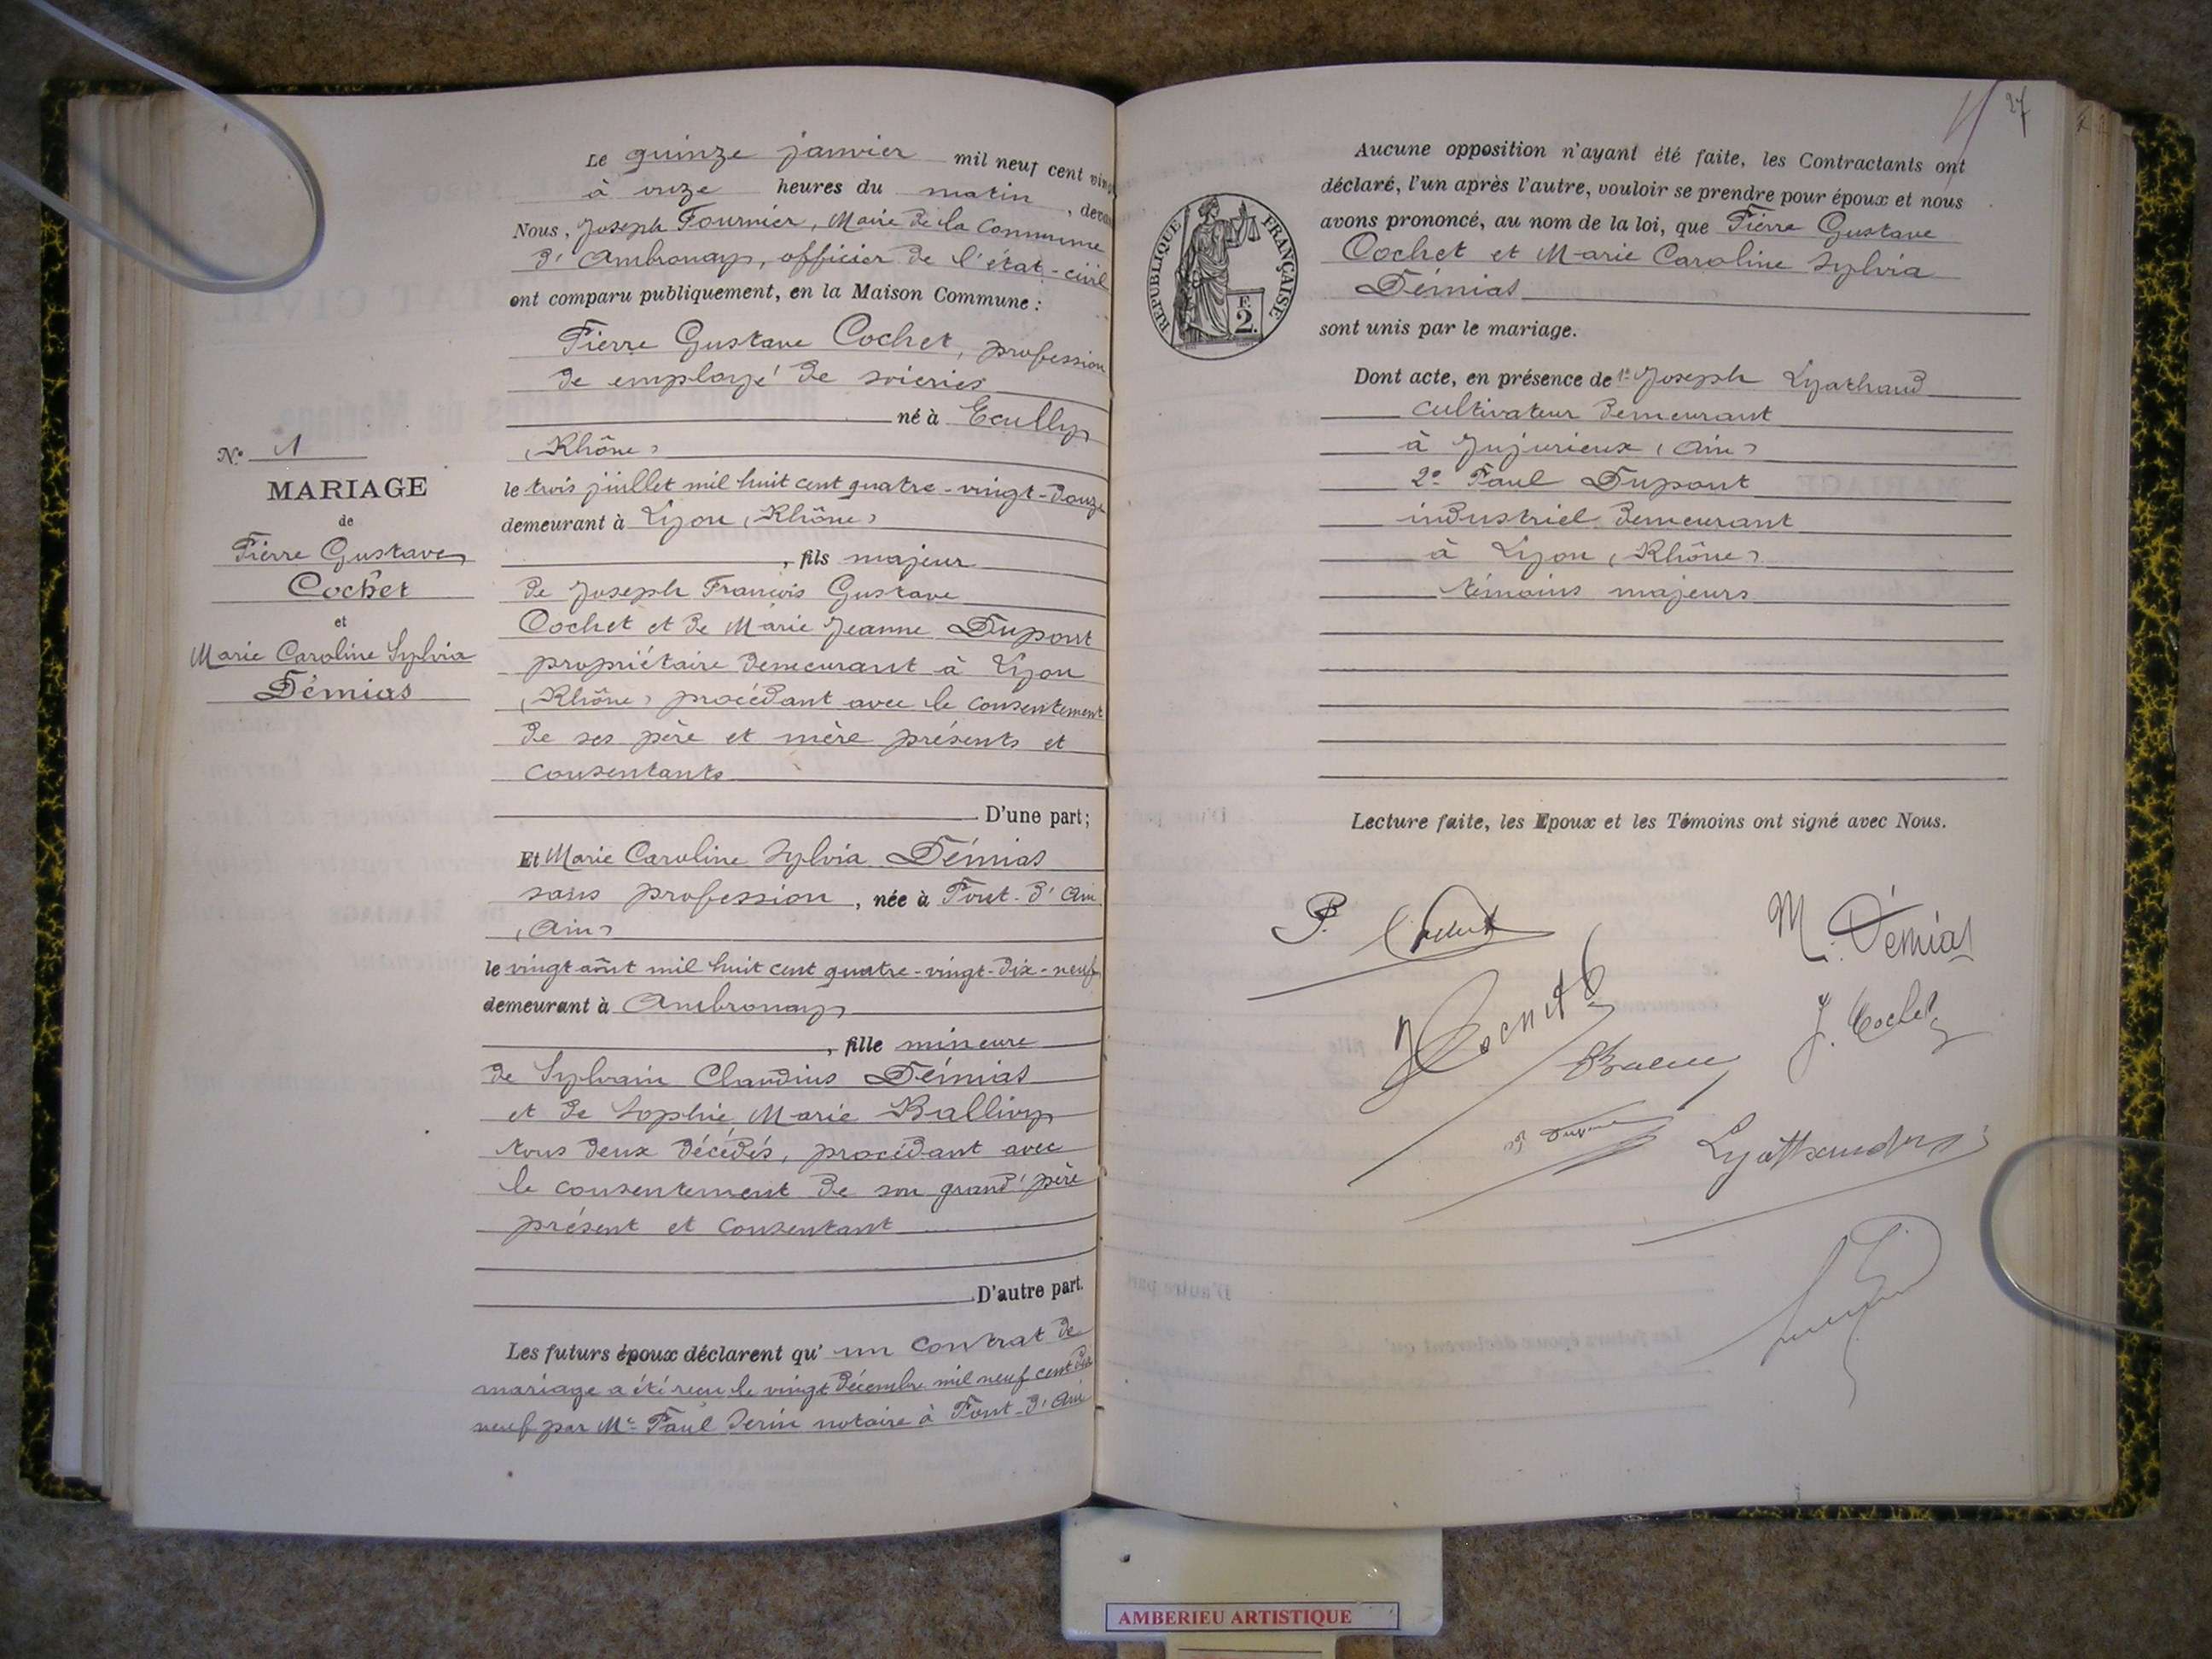 Le quinze janvier mil neuf cent vingt
à onze heures du matin, devant
Nous, Joseph Fournier, Maire de la Commune
d'Ambronay, officier de l'état-civil
ont comparu publiquement, en la Maison Commune :
Pierre Gustave Cochet, profession
de employé de soieries
né à Ecully
(Rhône)
le trois juillet mil huit cent quatre-vingt-douze
demeurant à Lyon (Rhône)
, fils majeur
de Joseph François Gustave
Cochet et de Marie Jeanne Dupont
propriétaire demeurant à Lyon
(Rhône) procédant avec le consentement
de ses père et mère présents et
consentants
D'une part;
Et Marie Caroline Sylvia Démias
sans profession, née à Pont-d'Ain
(Ain)
le vingt août mil huit cent quatre-vingt-dix-neuf
demeurant à Ambronay
, fille mineure
de Sylvain Claudius Démias
et de Sophie Marie Ballivy
tous deux décédés, procédant avec
le consentement de son grand'père
présent et consentant
D'autre part.
Les futurs époux déclarent qu'un contrat de
mariage a été reçu le vingt décembre mil neuf cent dix
neuf par Me Paul notaire à Pont-d'Ain
N° 1
MARIAGE
de
Pierre Gustave
Cochet
et
Marie Caroline Sylvia
Démias
27
Aucune opposition n'ayant été faite, les Contractants ont
déclaré, l'un après l'autre, vouloir se prendre pour époux et nous
avons prononcé, au nom de la loi, que Pierre Gustave
Cochet et Marie Caroline Sylvia
Démias
sont unis par le mariage.
RÉPUBLIQUE FRANÇAISE
F.
2.
Dont acte, en présence de 1° Joseph Lyathaud
cultivateur demeurant
à Jujurieux (Ain)
2° Paul Dupont
industriel demeurant
à Lyon (Rhône)
témoins majeurs
Lecture faite, les Epoux et les Témoins ont signé avec Nous.
P. Cochet
M. Démias
J. Cochet
Lyathaud
AMBERIEU ARTISTIQUE